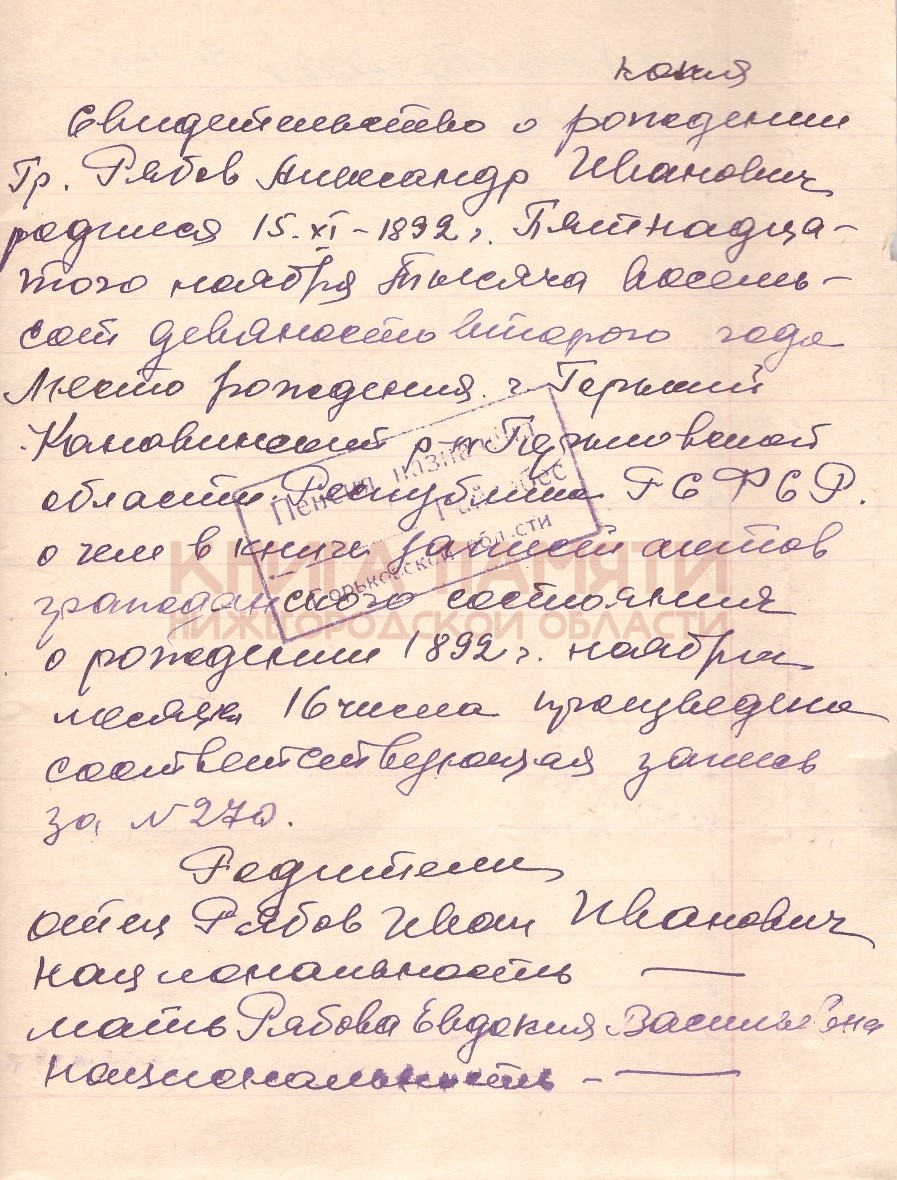 копия
Свидетельство о рождении
Гр. Рябов Александр Иванович
родился 15.XI-1892 г. Пятнадца-
того ноября Тысяча восемь-
сот девяносто второго года
Место рождения г. Горький
Канавинский р-н Горьковской
области Республика РСФСР.
о чем в книге записей актов
гражданского состояния
о рождении 1892 г. ноября
месяца 16 числа произведена
соответствующая запись
за №270.
Родители
отец Рябов Иван Иванович
национальность —
мать Рябова Евдокия Васильевна
национальность - —
Пенсия назначена
Райсобес
Горьковской области
КНИГА ПАМЯТИ
НИЖЕГОРОДСКОЙ ОБЛАСТИ